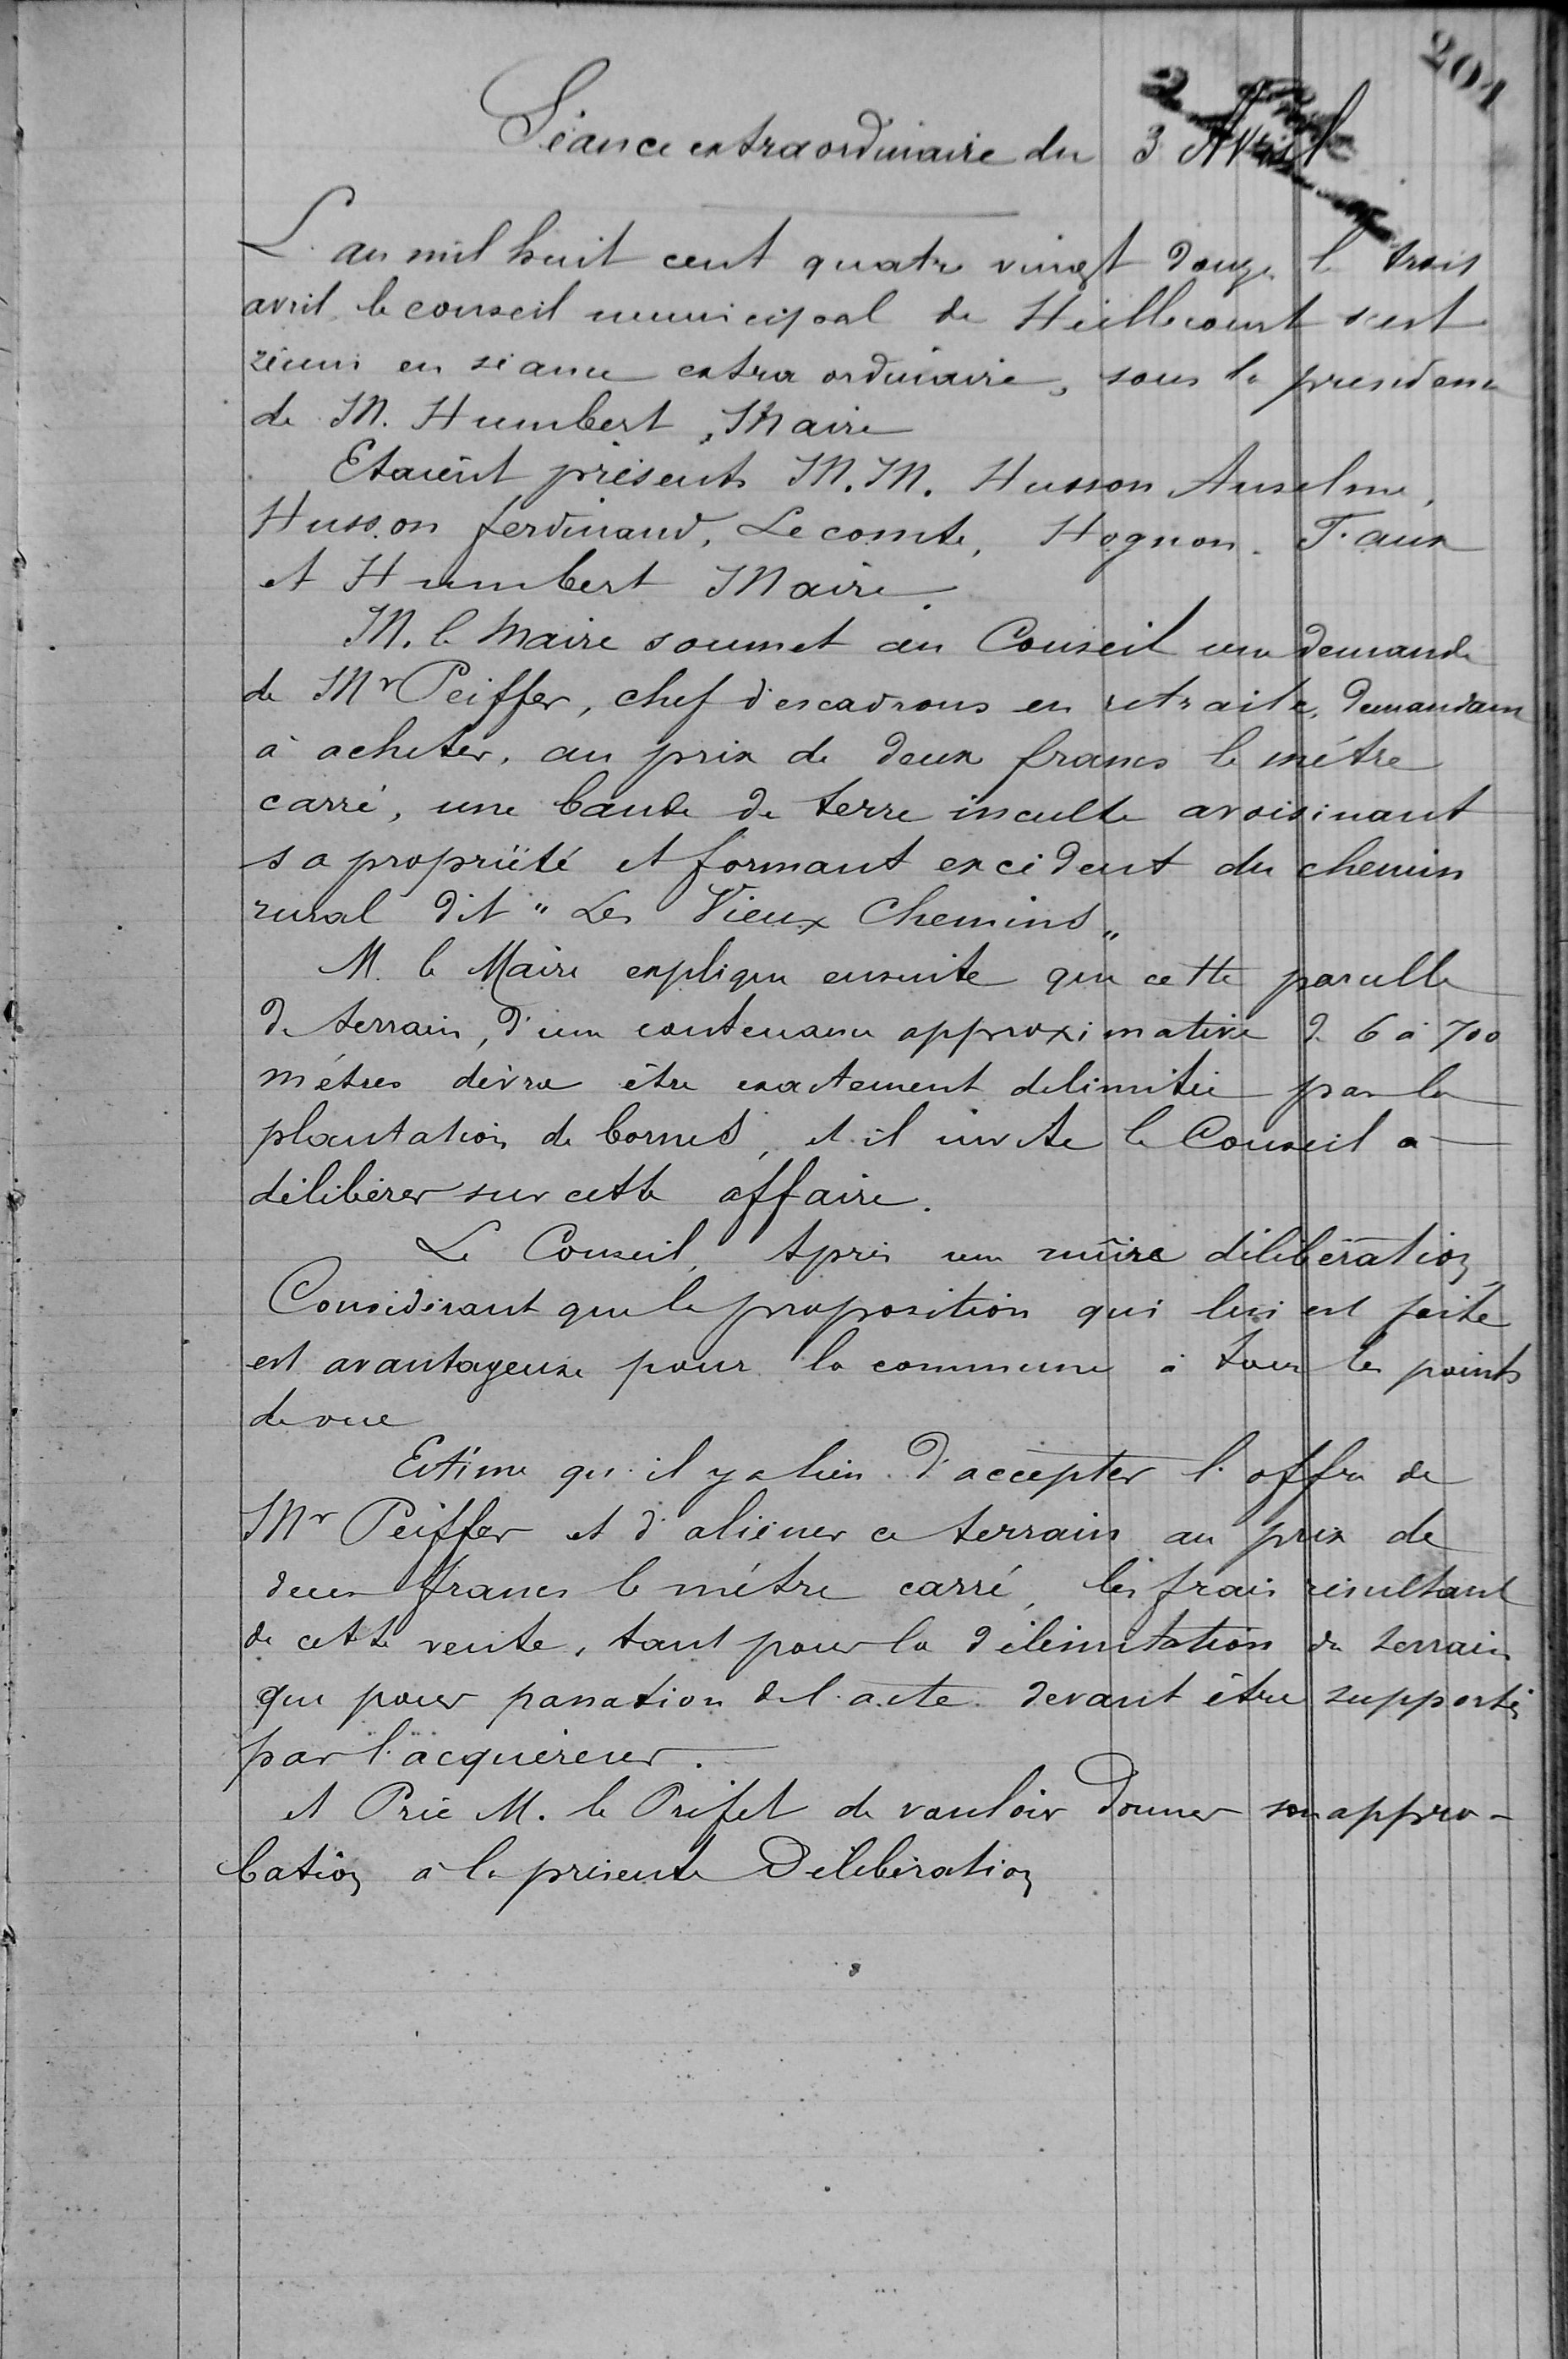 201
Séance extraordinaire du 3 Avril
L'an mil huit cent quatre vingt douze le trois
avril le conseil municipal de Heillecourt s'est
réuni en séance extra ordinaire, sous la présidence
de M. Humbert, Maire
Etaient présents M.M. Husson Anselme,
Husson ferdinand, Lecomte, Hognon. Faux
et Humbert Maire.
M. le Maire soumet au Conseil une demande
de Mr Peiffer, chef d'escadrons en retraite, demandant
à acheter, au prix de deux francs le mètre
carré, une bande de terre inculte avoisinant
sa propriété et formant excédent du chemin
rural dit "Les Vieux Chemins"
M. le Maire explique ensuite que cette parcelle
de terrain, d'une contenance approximative de 6 à 700
mètres devra être exactement délimitée par la
plantation de bornes, et il invite le Conseil a
délibérer sur cette affaire.
Le Conseil, Après une mûre délibération,
Considérant que la proposition qui lui est faite
est avantageuse pour la commune à tous les points
de vue
Estime qu'il y a lieu d'accepter l'offre de
Mr Peiffer et d'aliéner ce terrain au prix de
deux francs le mètre carré, les frais résultant
de cette vente, tant pour la délimitation du terrain
que pour passation de l'acte devant être supportés
par l'acquéreur.
et Prie M. le Préfet de vouloir donner son appro-
bation à la présente Délibération